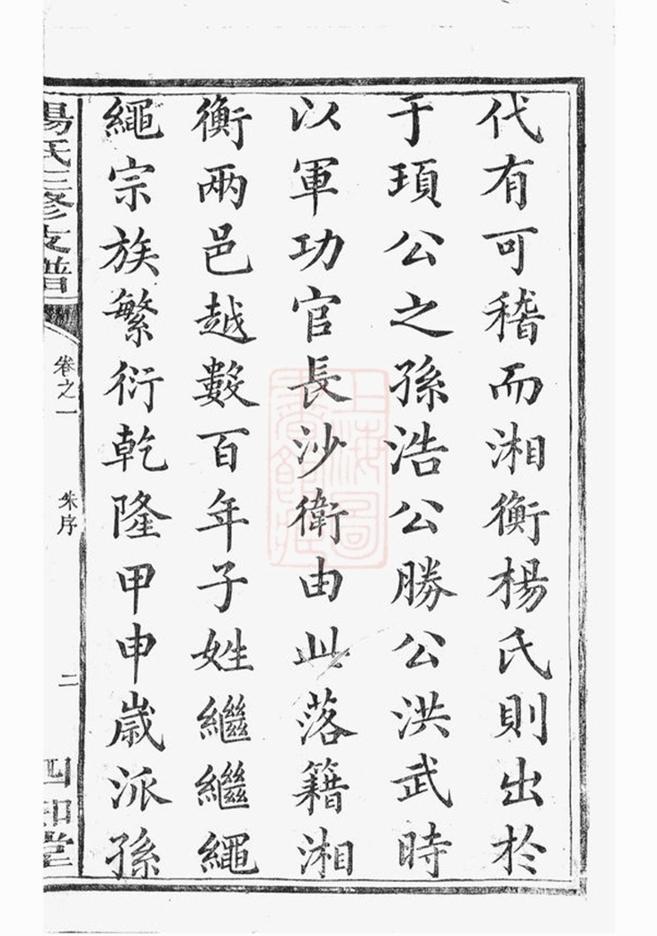 代有可稽而湘衡楊氏則出於
于頊公之孫浩公勝公洪武時
以軍功官長沙衛由此落籍湘
衡兩邑越數百年子姓繼繼繩
繩宗族繁衍乾隆甲申歲派孫
楊氏三修支譜
卷之一
朱序
二
四知堂
上海圖書館藏